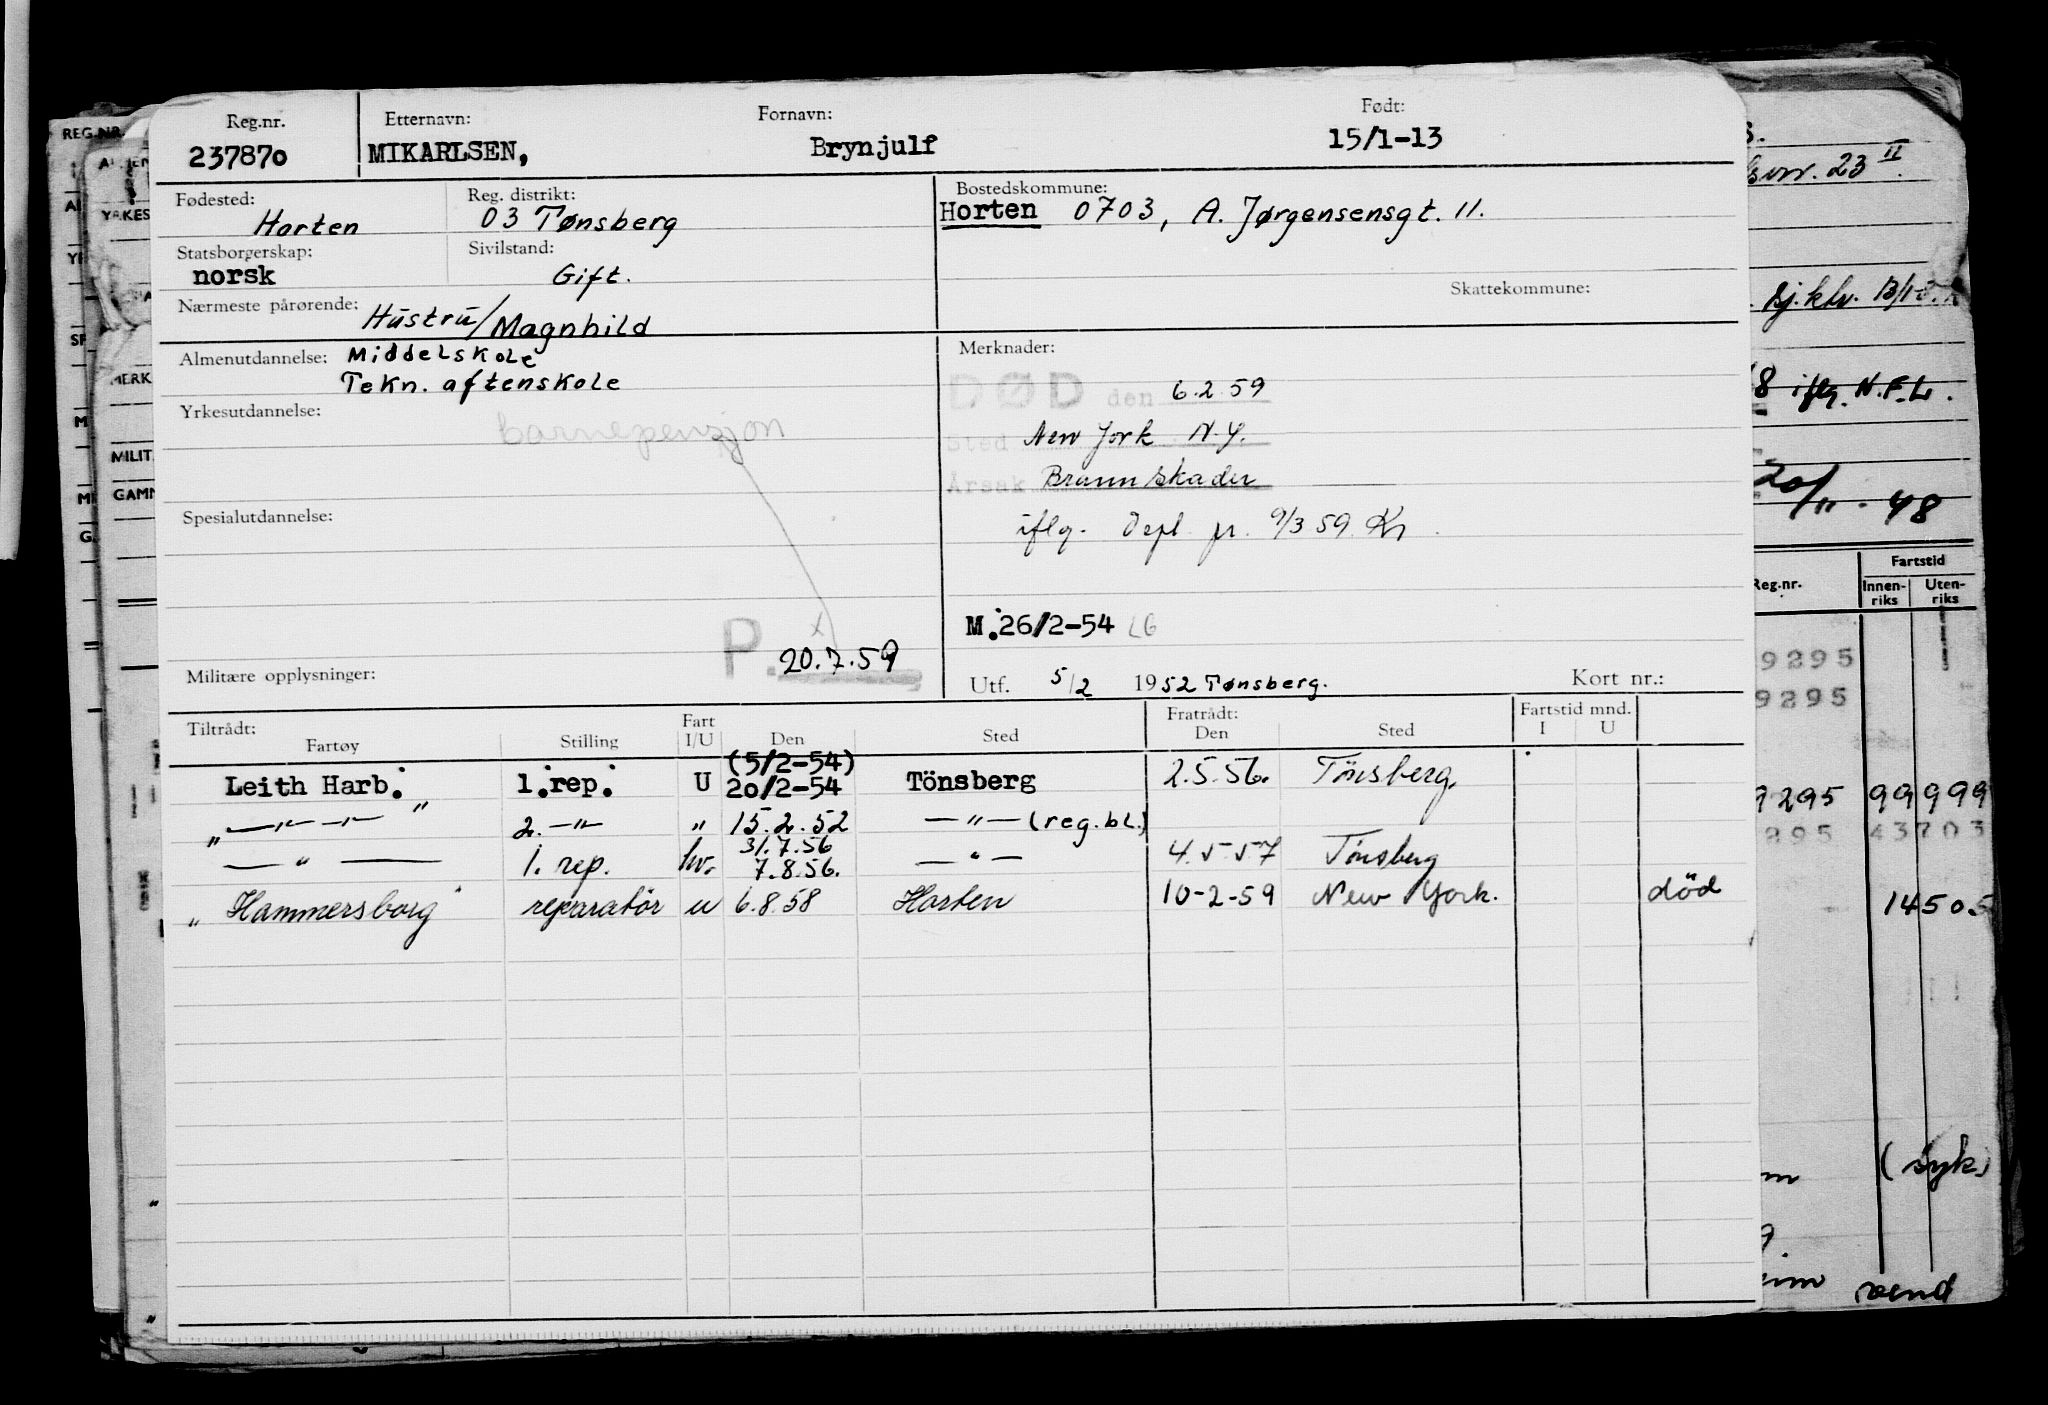 Reg.nr. Etternavn: Fornavn: Født:
237870 MIKARLSEN, Brynjulf 15/1-13
Fødested: Reg. distrikt: Bostedskommune:
Horten 03 Tønsberg Horten 0703, A. Jørgensensgt. 11.
Statsborgerskap: Sivilstand:
norsk Gift.
Nærmeste pårørende: Hustru/Magnhild Skattekommune:
Almenutdannelse: Middelskole Merknader:
Tekn. aftenskole DØD den 6.2.59
Yrkesutdannelse: barnepensjon Sted New York N.Y.
Årsak Brannskader
Spesialutdannelse: iflg. Depl. pr. 9/3 59
M.26/2-54 LG
P. 20.7.59
Militære opplysninger: Utf. 5/2 1952 Tønsberg. Kort nr.:
Tiltrådt: Fart Fratrådt: Fartstid mnd.
Fartøy Stilling I/U Den Sted Den Sted I U
(5/2-54)
Leith Harb. 1.rep. U 20/2-54 Tönsberg 2.5.56. Tönsberg.
„ —"— —"— " 2. —"— " 15.2.52 —"— (reg.bl.)
31.7.56
— " — 1. rep. hv. 7.8.56. — " — 4.5.57 Tönsberg
„Hammersborg" reparatör u 6.8.58 Horten 10-2-59 New York. död
REG.NR.
YRKES
MERK
MILIT.
GAMN
23 II.
iflg. N.F.L.
20/11.48
Reg.nr. Fartstid
Innenriks Utenriks
9295
9295
9295 99 999
295 43703
14505
(syk)